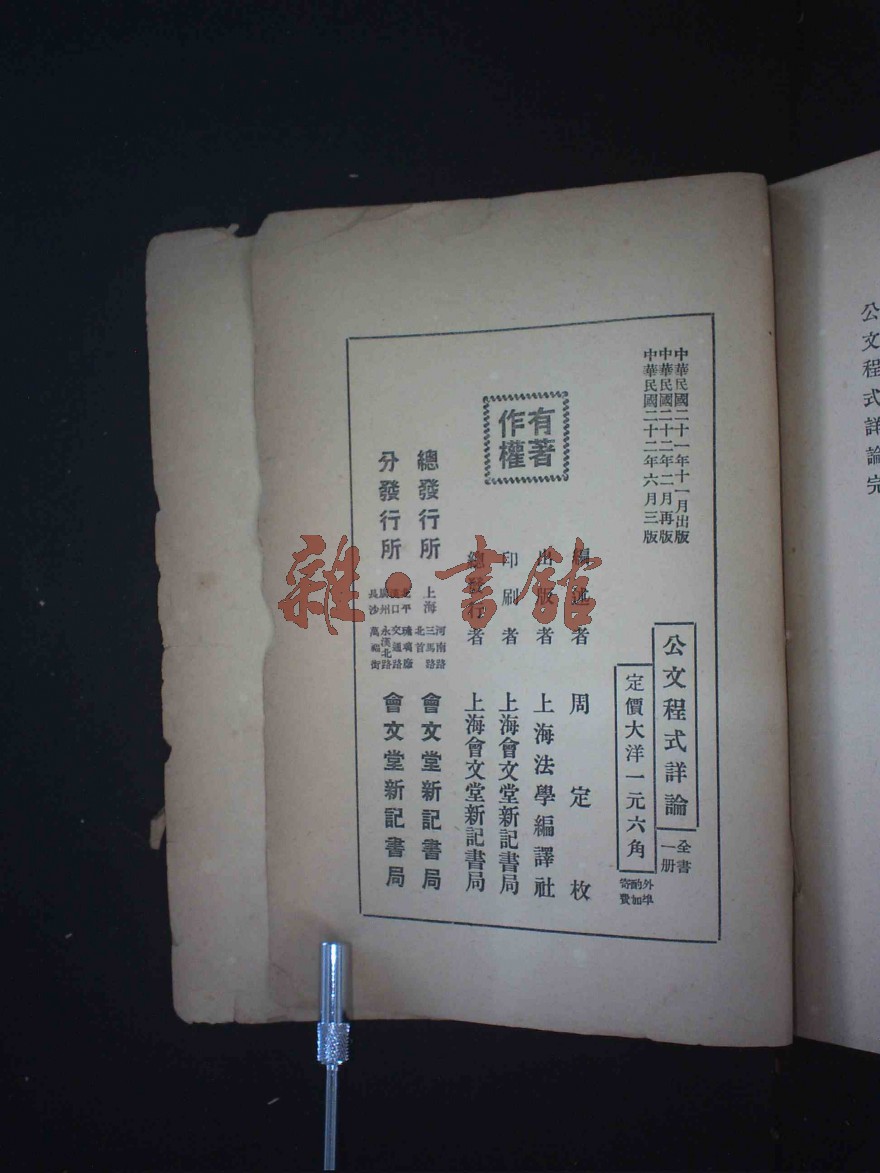 公文程式詳論完
中華民國二十一年十一月出版
中華民國二十二年二月再版
中華民國二十二年六月三版
公文程式詳論
全書一册
定價大洋一元六角
外埠酌加寄費
有著作權
編述者 周定枚
出版者 上海法學編譯社
印刷者 上海會文堂新記書局
總發行者 上海會文堂新記書局
總發行所 上海 河南路三馬路北首 會文堂新記書局
分發行所
北平 琉璃廠
漢口 交通路
廣州 永漢北路
長沙 萬福街
會文堂新記書局
雜·書館